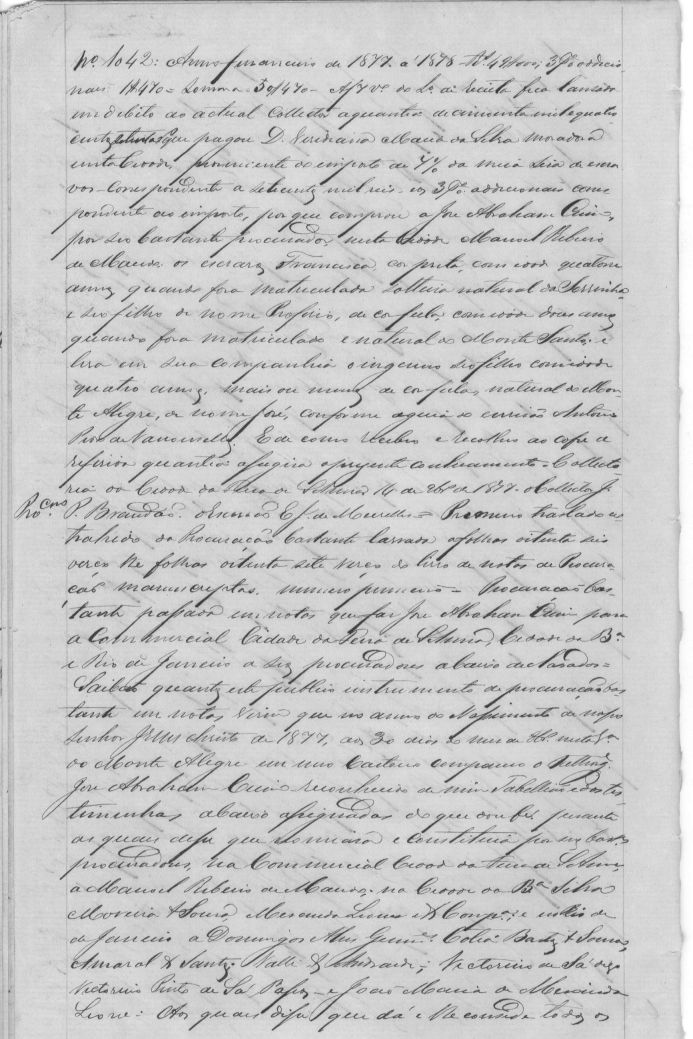 Nº 1042: Anno financeiro de 1877 a 1878 - Rs 49$000; 3 Pº addicio
naes 1$470 = Somma 50$470 - Af 7 vº do Lº de receita fica lançado
em debito ao actual Collector a quantia de cincoenta mil e quatro
centos setenta reis que pagou D. Veridiana Maria da Silva moradora
nesta Cidade, proveniente do imposto de 7% da meia siza de escra
vos - correspondente a setecentos mil reis - e os 3 Pº addicionaes corres
pondente ao imposto, por que comprou a José Abraham Cuim,
por seo bastante procurador nesta Cidade Manoel Ribeiro
de Macedo os escravos Francisca, cor preta, com idade quatorze
annos quando fora matriculada solteira natural da Serrinha
e seo filho de nome Profirio, de cor fula, com idade dous annos
quando fora matriculado e natural do Monte Santo, e
leva em sua companhia o ingenuo seo filho com idade
quatro annos, mais ou menos de cor fula, natural do Mon
te Alegre, de nome José, conforme a guia do escrivão Antonio
Pires de Vasconcellos. E de como recebeo e recolheo ao cofre a
referida quantia assigna o presente conhecimento - Collecto
ria da Cidade da Feira de Sant'Anna 14 de 9brº de 1877. O Collector J.
Procº
P. Brandão. O Escrivão E. J. de Meirelles = Primeiro traslado ex
trahido da Procuração bastante lavrada a folhas oitenta seis
verço he folhas oitenta sete verço do livro de notas de Procura
ções manuscriptas numero primeiro = Procuração bas
tante passada em notas que faz José Abraham Cuim para
a Commercial Cidade da Feira de Sant'Anna, Cidade da Bª
e Rio de Janeiro a seus procuradores abaixo declarados =
Saibão quantos este publico instrumento de procuração bas
tante em notas virem que no anno do Nascimento de nosso
Senhor Jesus Christo de 1877, aos 30 dias do mes de 8brº nesta Vª
do Monte Alegre em meu Cartorio compareceo o
José Abraham Cuim reconhecido de mim Tabellião e das tes
timunhas abaixo assignadas do que dou fé, perante
as quais disse que nomeava e constituia por seus bastes
procuradores, na Commercial Cidade da Feira de Sant'Anna
a Manoel Ribeiro de Macedo, na Cidade da Bª Silva
Moreira & Souza, Mesandro Leone & Compª; e no Rio de
de Janeiro a Domingos Alves Guimes Cotia Bastos & Souza,
Amaral & Santos, Valle & Andrade; Victorino de Sá digo
Victorino Pinto de Sá Passos e João Maria de Miranda
Leone: Aos quais disse que dá e lhe concede todos os